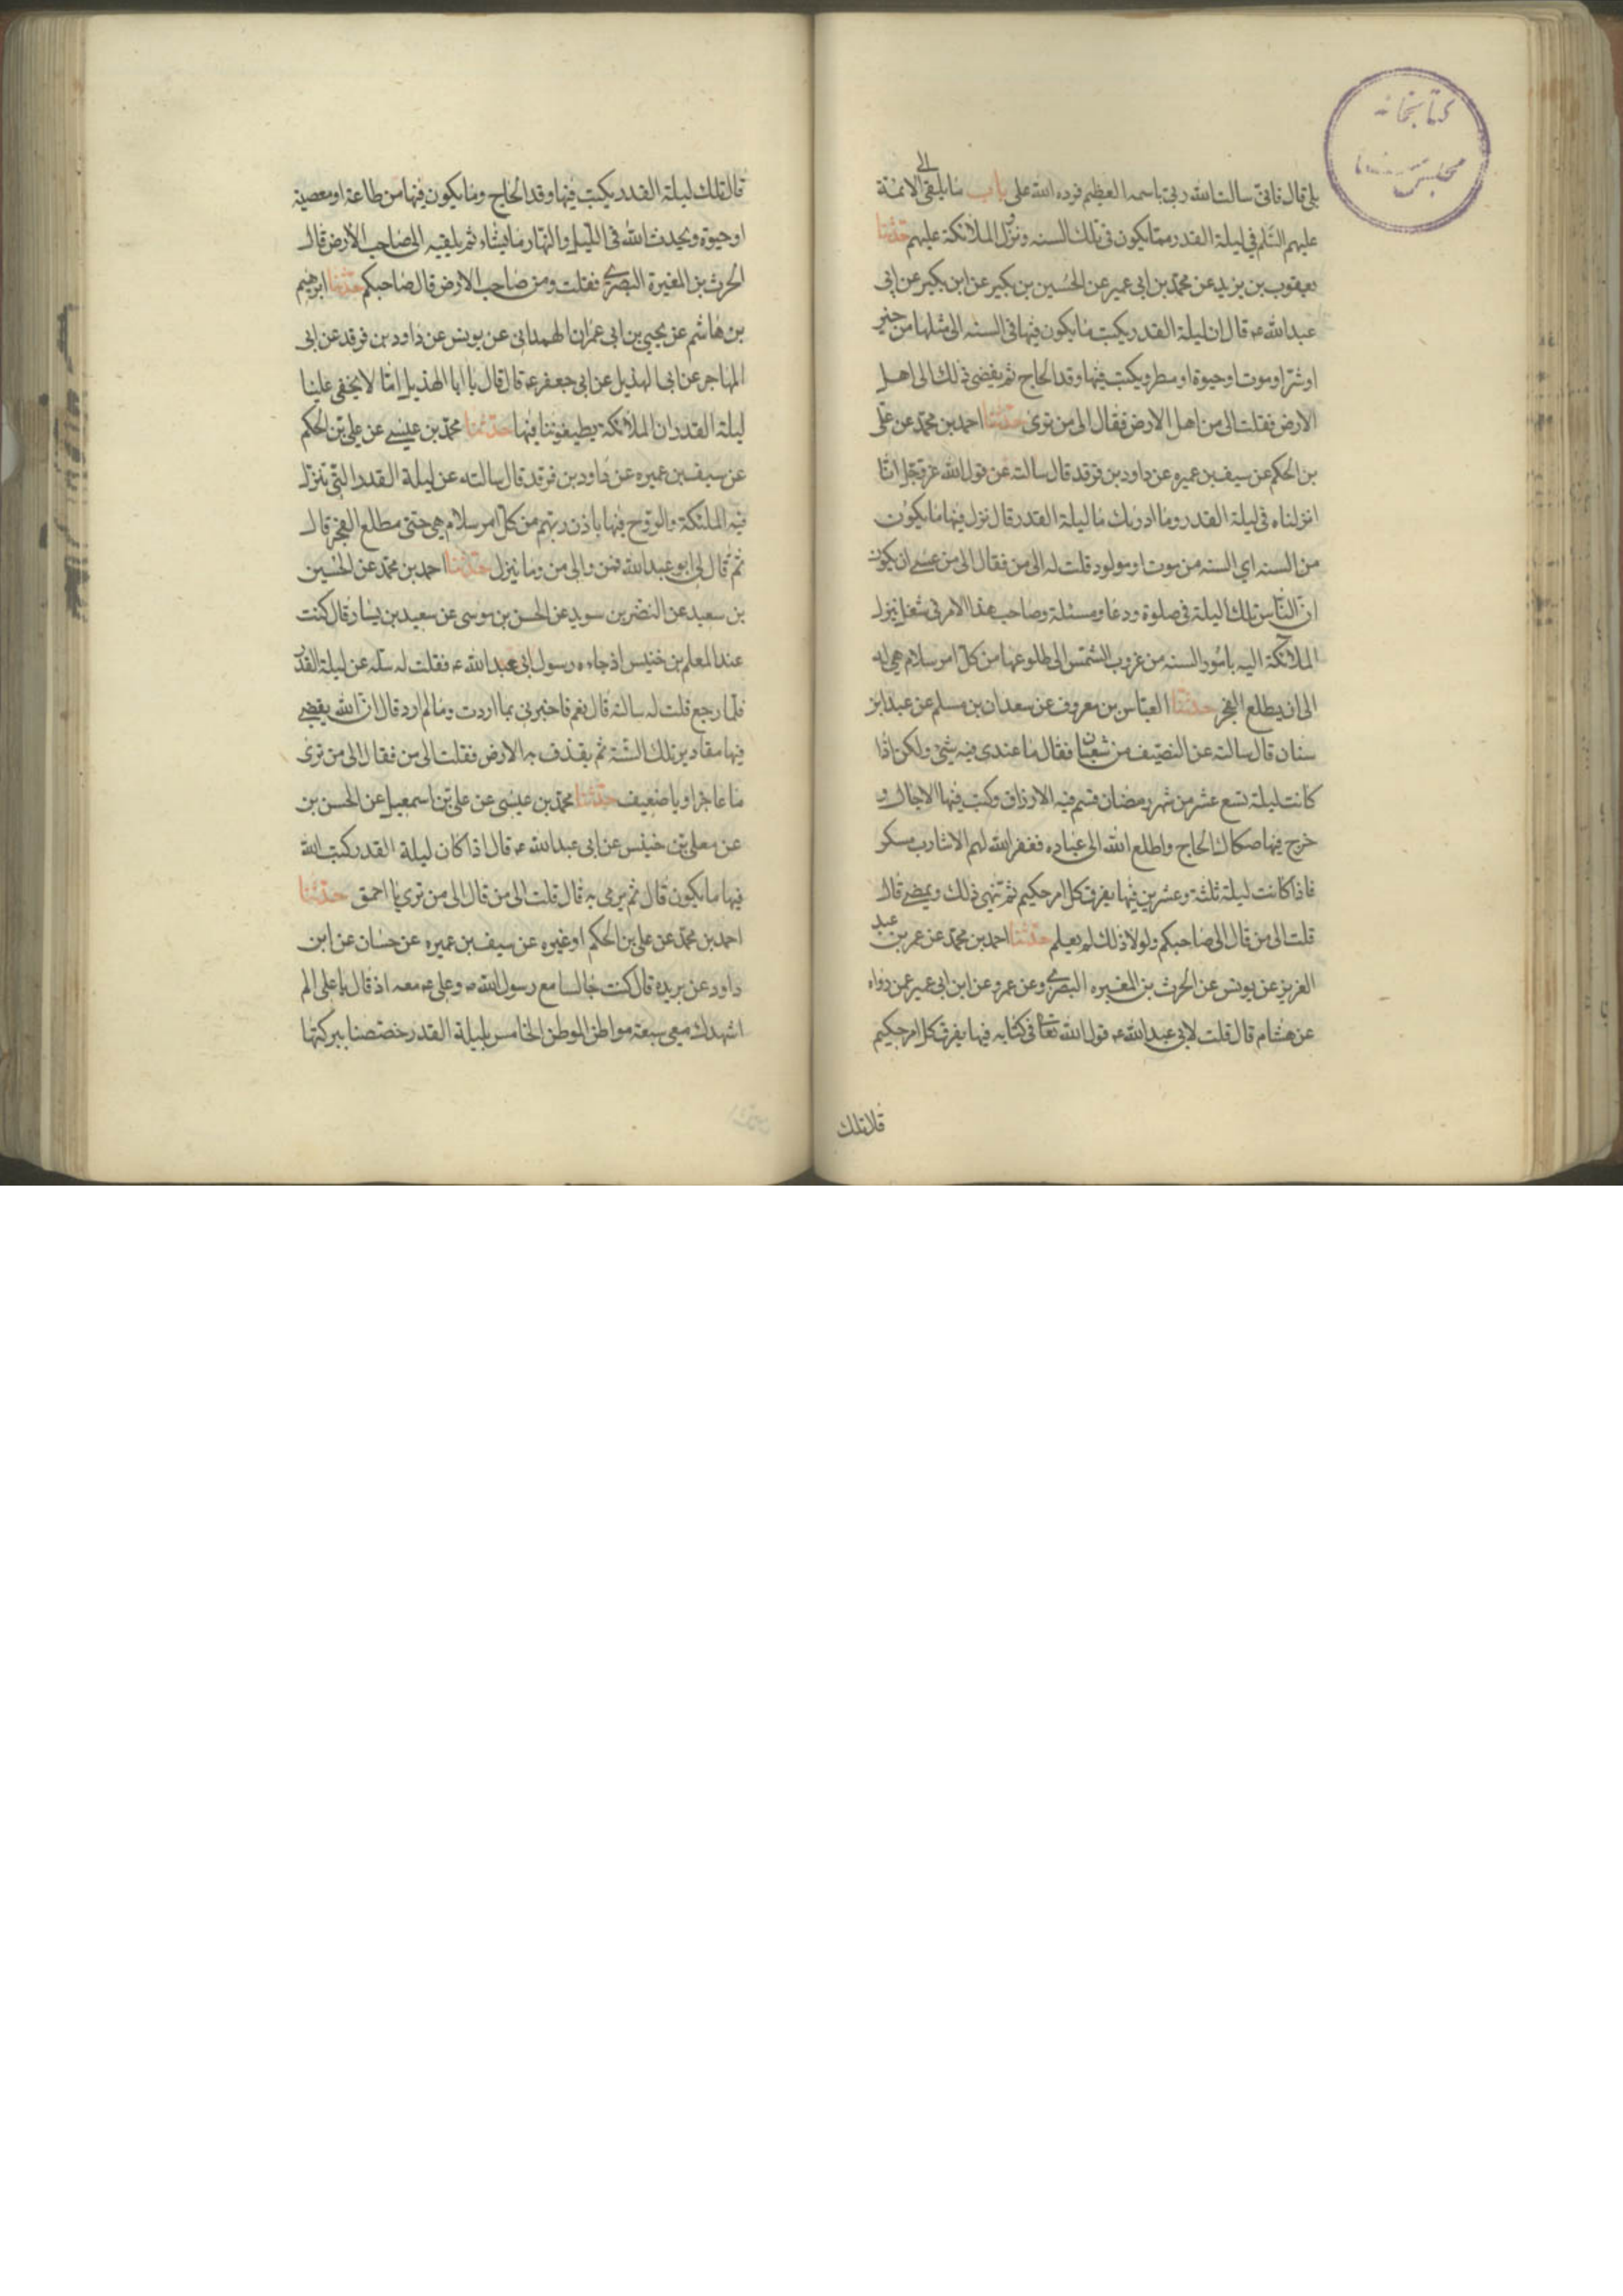 كتابخانه
مجلس
بلى قال فانى سالت الله ربى باسمه العظيم فرده الله على باب ما يلقى الى الائمة
عليهم السلم فى ليلة القدر مما يكون فى تلك السنه ونزل الملائكة عليهم حدثنا
يعقوب بن يزيد عن محمد بن ابى عمير عن الحسين بن بكير عن ابن بكير عن ابى
عبد الله ع قال ان ليلة القدر يكتب ما يكون فيها فى السنه الى مثلها من خير
او شر او موت او حيوة او مطر ويكتب فيها وفد الحاج ثم يفضى ذلك الى اهل
الارض فقلت الى من اهل الارض فقال الى من ترى حدثنا احمد بن محمد عن على
بن الحكم عن سيف بن عميره عن داود بن فرقد قال سالته عن قول الله عز وجل انا
انزلناه فى ليلة القدر وما ادريك ما ليلة القدر قال نزل فيها ما يكون
من السنه اي السنه من موت او مولود قلت له الى من فقال الى من عسى ان يكون
ان الناس تلك الليلة فى صلوة ودعا ومسئلة وصاحب هذا الامر فى شغل ينزل
الملائكة اليه بامور السنه من غروب الشمس الى طلوعها من كل امر سلام هى له
الى ان يطلع الفجر حدثنا العباس بن معروف عن سعدان بن مسلم عن عبد الله بن
سنان قال سالته عن النصيف من شعبان فقال ما عندى فيه شئ ولكن اذا
كانت ليلة تسع عشر من شهر رمضان قسم فيه الارزاق وكتب فيها الاجال و
خرج فيها صكاك الحاج واطلع الله الى عباده فغفر الله لهم الا شارب مسكر
فاذا كانت ليلة ثلثة وعشرين فيها يفرق كل امر حكيم ثم ينهى ذلك ويمضى قال
قلت الى من قال الى صاحبكم ولولا ذلك لم يعلم حدثنا احمد بن محمد عن عمر بن عبد
العزيز عن يونس عن الحرث بن المغيره البصرى وعن عمرو عن ابن ابى عمير عمن رواه
عن هشام قال قلت لابى عبد الله ع قول الله تعالى فى كتابه فيها يفرق كل امر حكيم
قال تلك
قال تلك ليلة القدر يكتب فيها وفد الحاج وما يكون فيها من طاعة او معصية
او حيوة ويحدث الله فى الليل والنهار ما يشاء ثم يلقيه الى صاحب الارض قال
الحرث بن المغيرة البصرى فقلت ومن صاحب الارض قال صاحبكم حدثنا ابرهيم
بن هاشم عن يحيى بن ابى عمران الهمدانى عن يونس عن داود بن فرقد عن ابى
المهاجر عن ابى الهذيل عن ابى جعفر ع قال قال يا ابا الهذيل اما لا يخفى علينا
ليلة القدر ان الملائكة يطيفوننا فيها حدثنا محمد بن عيسى عن على بن الحكم
عن سيف بن عميره عن داود بن فرقد قال سالته عن ليلة القدر التى تنزل
فيه الملئكة والروح فيها باذن ربهم من كل امر سلام هى حتى مطلع الفجر قال
ثم قال لى ابو عبد الله فمن والى من وما ينزل حدثنا احمد بن محمد عن الحسين
بن سعيد عن النضر بن سويد عن الحسن بن موسى عن سعيد بن يسار قال كنت
عند المعلم بن خنيس اذ جاءه رسول ابى عبد الله ع فقلت له سله عن ليلة القدر
فلما رجع قلت له سالته قال نعم فاخبرنى بما اردت وما لم ارد قال ان الله يقضى
فيها مقادير تلك السنة ثم يقذف به الارض فقلت الى من فقال الى من ترى
ما عاجزا ويا ضعيف حدثنا محمد بن عيسى عن على بن اسمعيل عن الحسن بن
عن معلى بن خنيس عن ابى عبد الله ع قال اذا كان ليلة القدر كتب الله
فيها ما يكون قال ثم يرمى به قال قلت الى من قال الى من ترى يا احمق حدثنا
احمد بن محمد عن على بن الحكم او غيره عن سيف بن عميره عن حسان عن ابن
داود عن بريده قال كنت جالسا مع رسول الله ص وعلى ع معه اذ قال يا على الم
اشهدك معى سبعة مواطن الموطن الخامس ليلة القدر خصصنا ببركتها